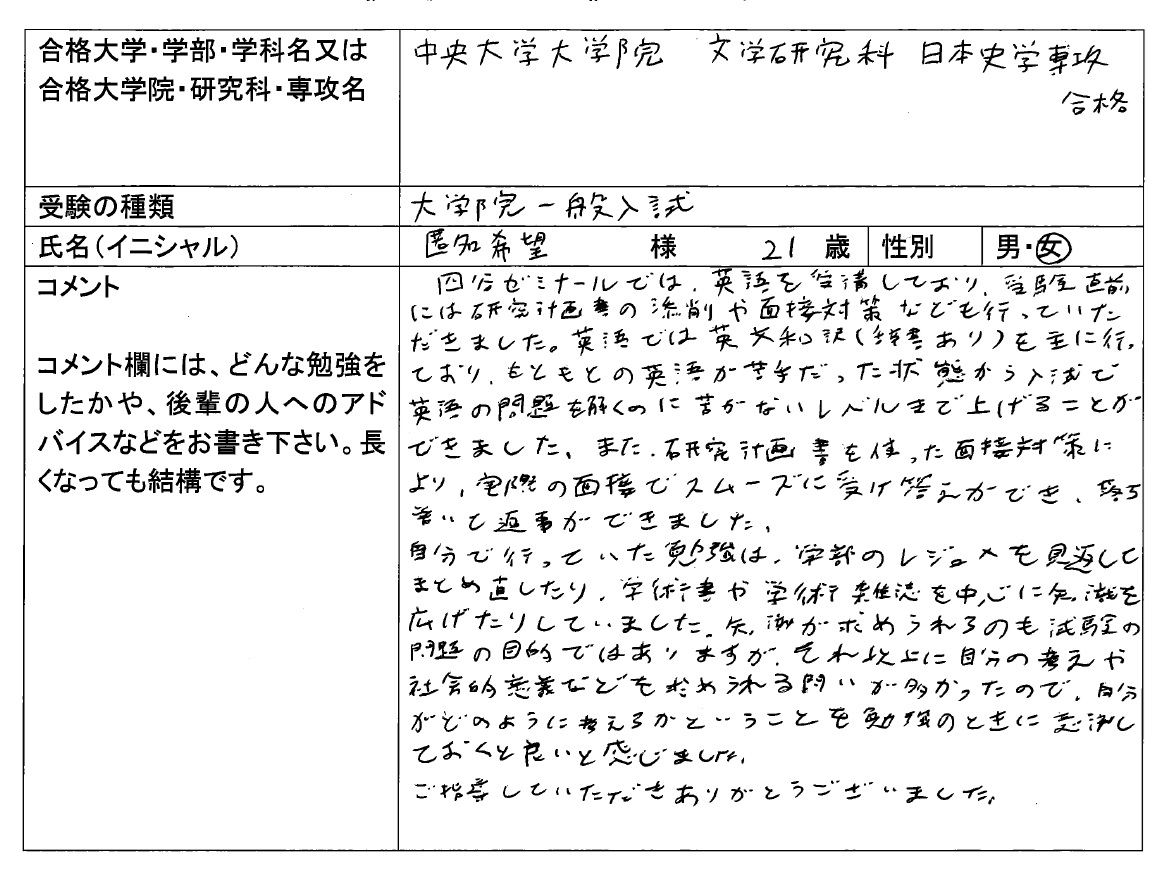 合格大学・学部・学科名又は
合格大学院・研究科・専攻名
中央大学大学院 文学研究科 日本史学専攻
合格
受験の種類
大学院一般入試
氏名(イニシャル)
匿名希望 様 21 歳 性別 男・女
コメント
コメント欄には、どんな勉強を
したかや、後輩の人へのアド
バイスなどをお書き下さい。長
くなっても結構です。
四谷ゼミナールでは、英語を受講しており、受験直前
には研究計画書の添削や面接対策なども行っていた
だきました。英語では英文和訳(辞書あり)を主に行っ
ており、もともとの英語が苦手だった状態から入試で
英語の問題を解くのに苦がないレベルまで上げることが
できました。また、研究計画書を使った面接対策に
より、実際の面接でスムーズに受け答えができ、落ち
着いて返事ができました。
自分で行っていた勉強は、学部のレジュメを見返して
まとめ直したり、学術書や学術雑誌を中心に知識を
広げたりしていました。知識が求められるのも試験の
問題の目的ではありますが、それ以上に自分の考えや
社会的意義などを求められる問いが多かったので、自分
がどのように考えるかということを勉強のときに意識し
ておくと良いと感じました。
ご指導していただきありがとうございました。